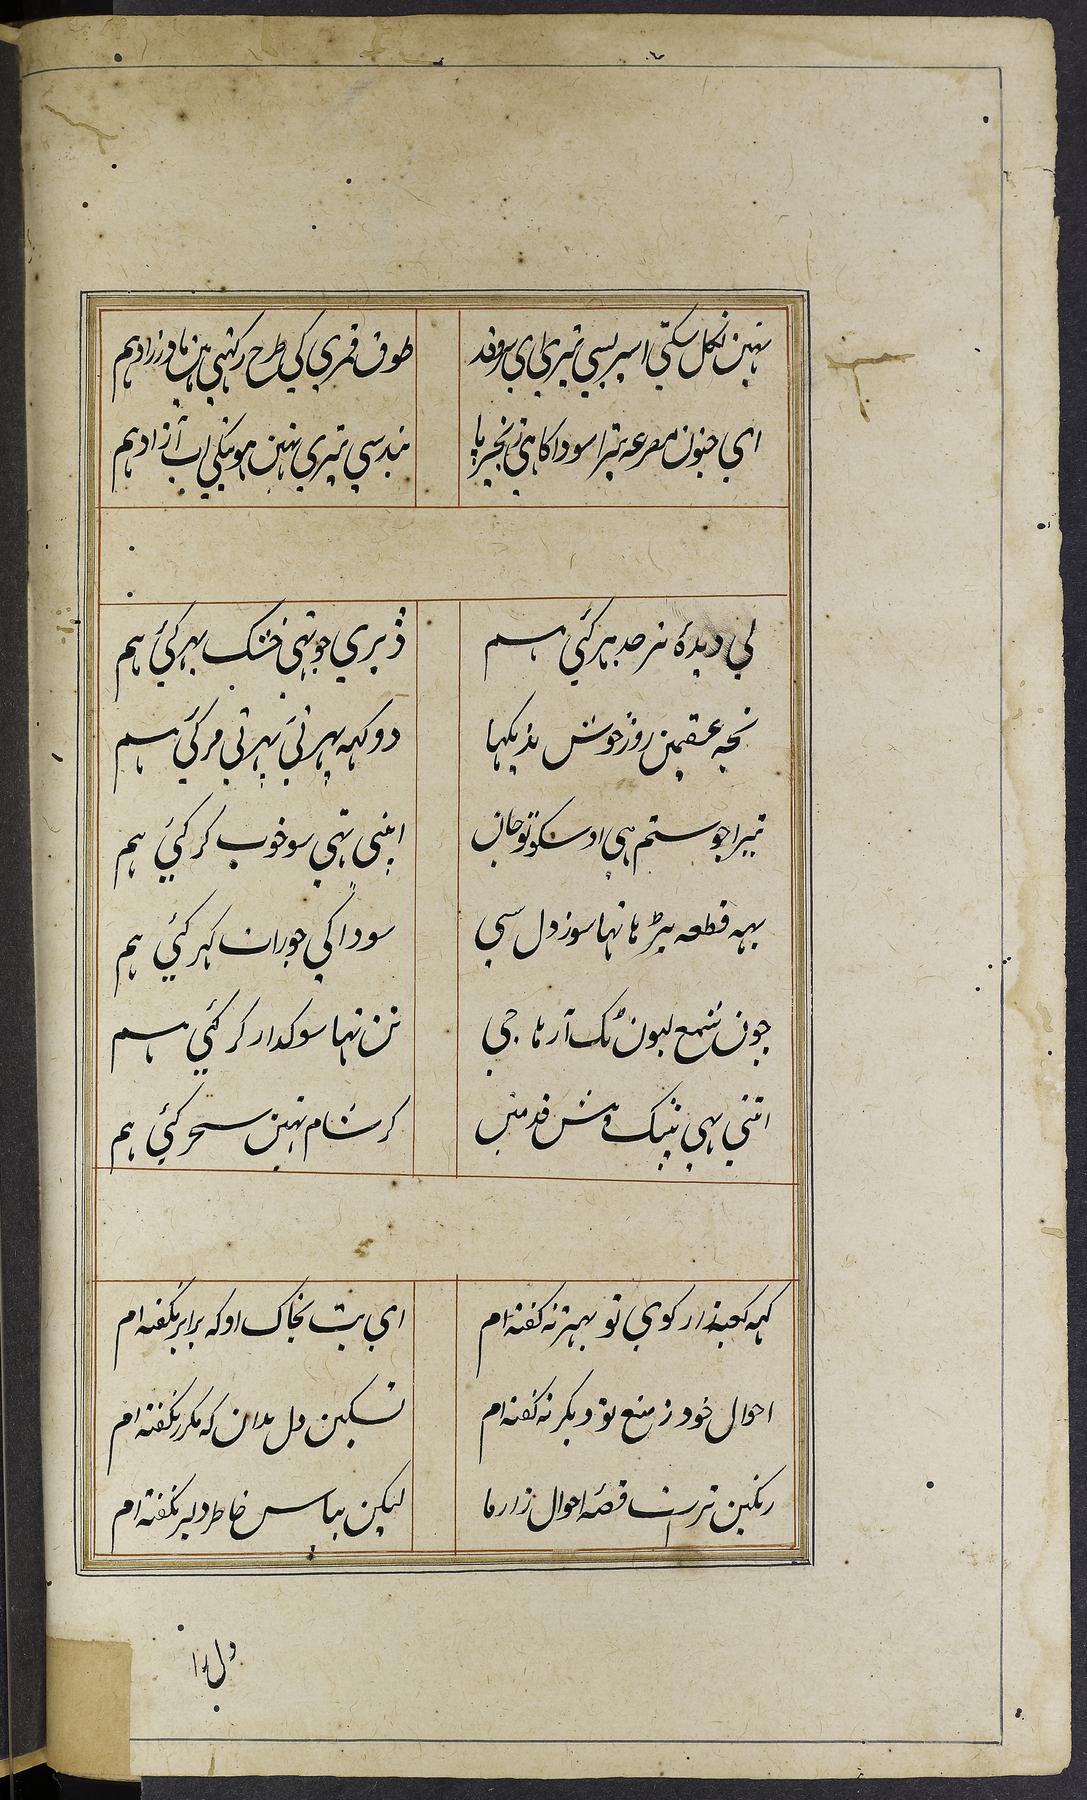 نہین نکل سکتی اسیر بسی تیری ای سرو قد
طوق قمری کی طرح رکہتی ہین مادرزاد ہم
ای جنون مصرعہ تیرا سودا کا ہی زنجیر پا
بند سی تیری نہین ہونیکی اب آزاد ہم
لی دیدۂ تر جدہر گئی ہم
ڈبری جو تہی خشک بہر گئی ہم
تجہ عشق مین روز خوش ندیکہا
دوکہہ بہرتی بہرتی مر گئی ہم
تیرا جو ستم ہی اوسکو تو جان
اپنی تہی سو خوب کر گئی ہم
یہہ قطعہ پڑہا تہا سوز دل سی
سودا کی جو رات گہر گئی ہم
جون شمع لبون تک آرہا جی
تن تہا سو گداز کر گئی ہم
اتنی بہی پتنگ پیش قدمین
گر شام نہین سحر گئی ہم
کہہ کعبہ را ز کوی تو بہتر نہ گفتہ ام
ای بت بخاک او کہ برابر نگفتہ ام
احوال خود ز منع تو دیگر نہ گفتہ ام
تسکین دل بدان کہ مکرر نگفتہ ام
رنگین ترست قصۂ احوال زار ما
لیکن بپاس خاطر دلبر نگفتہ ام
دل را